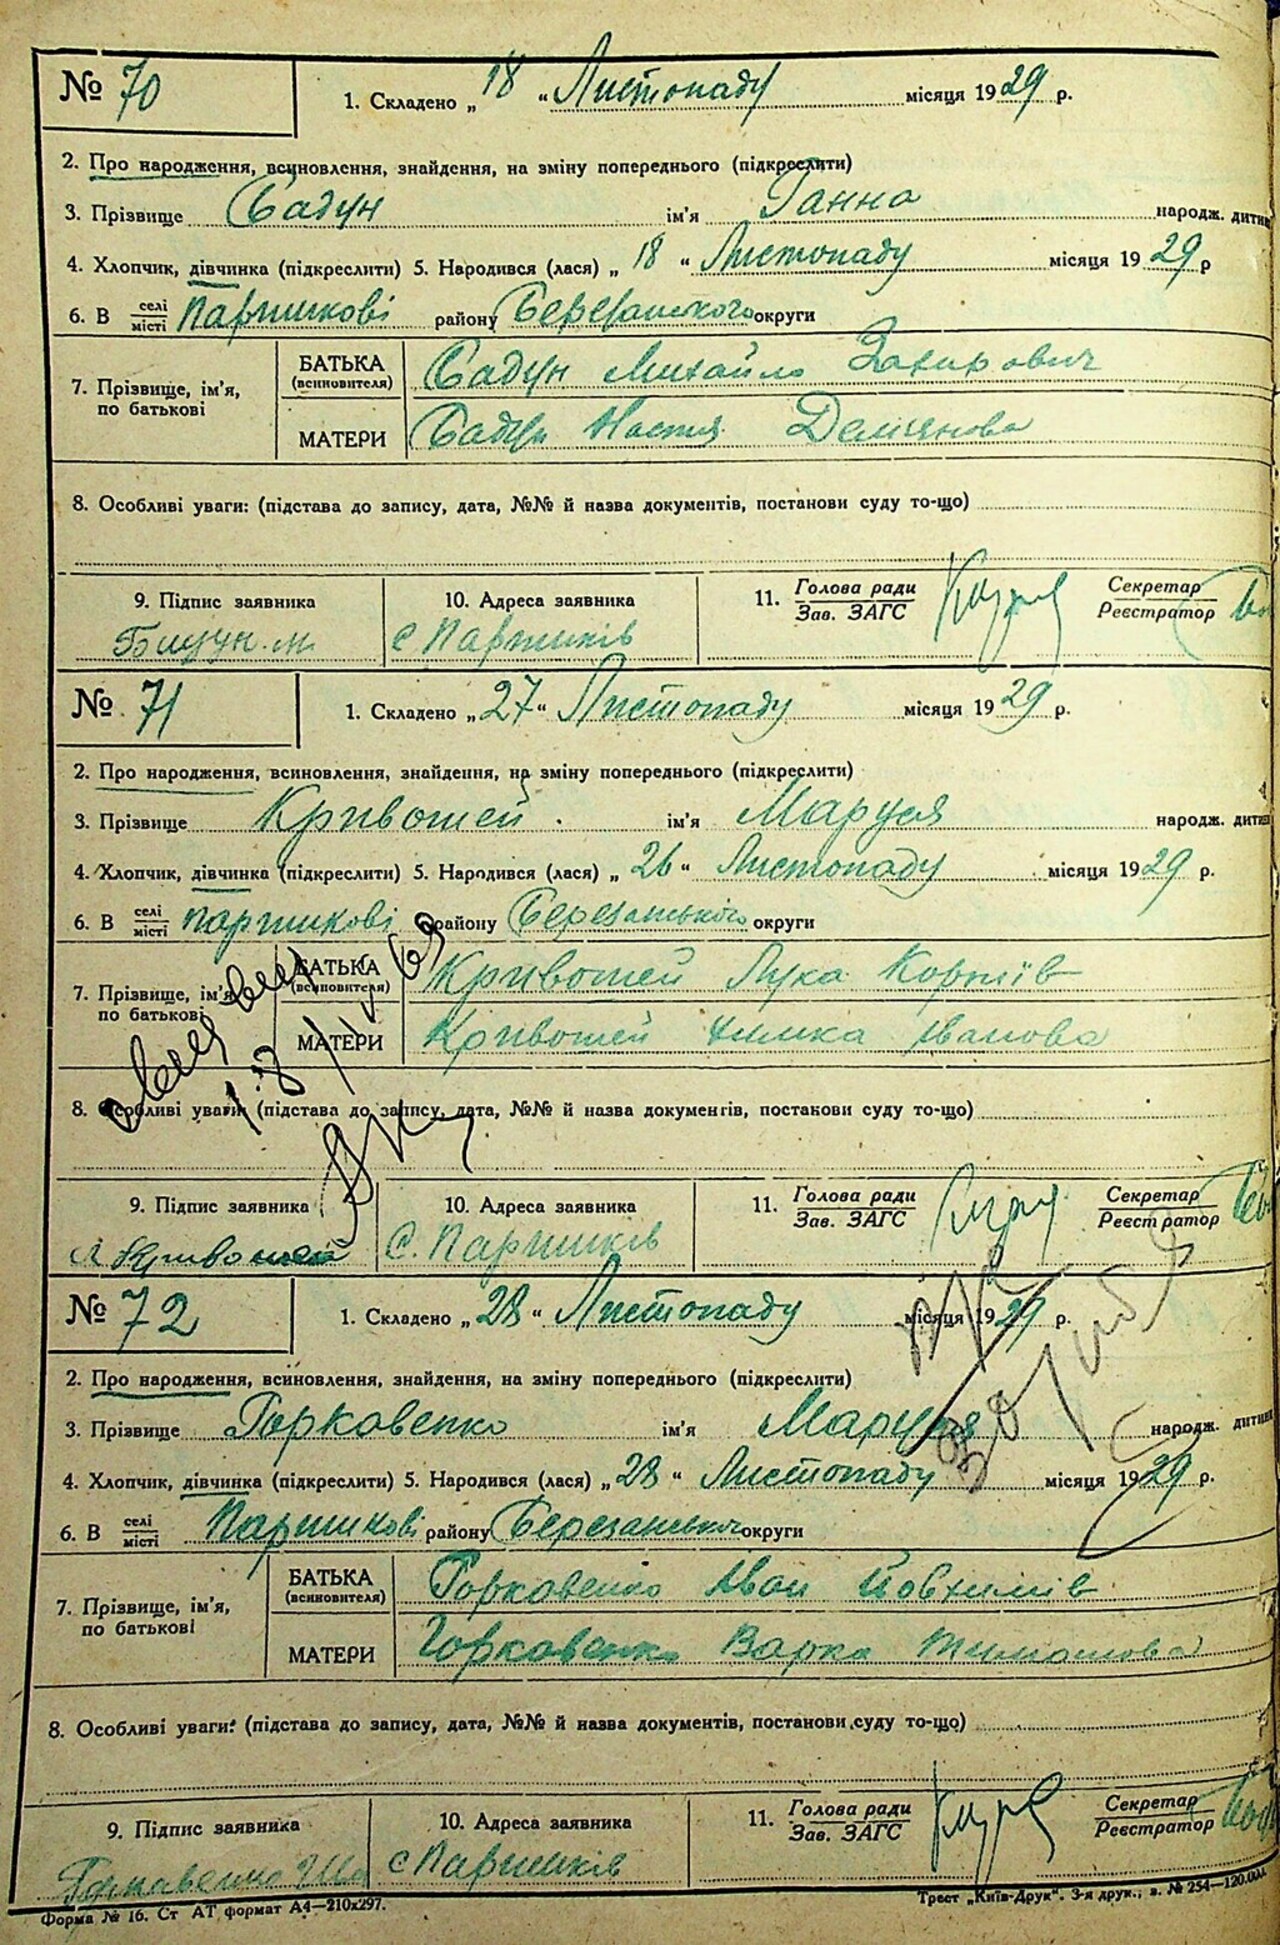 № 70
1. Складено „18“ Листопаду місяця 1929 р.
2. Про народження, всиновлення, знайдення, на зміну попереднього (підкреслити)
3. Прізвище Бадун ім'я Ганна народж. дитин
4. Хлопчик, дівчинка (підкреслити) 5. Народився (лася) „18“ Листопаду місяця 1929 р
6. В селі/місті Паришкові району Березанського округи
7. Прізвище, ім'я, по батькові
БАТЬКА (всиновителя) Бадун Михайло
МАТЕРИ Бадун Настя Демянова
8. Особливі уваги: (підстава до запису, дата, №№ й назва документів, постанови суду то-що)
9. Підпис заявника
10. Адреса заявника с Паришків
11. Голова ради/Зав. ЗАГС
Секретар/Реєстратор
№ 71
1. Складено „27“ Листопаду місяця 1929 р.
2. Про народження, всиновлення, знайдення, на зміну попереднього (підкреслити)
3. Прізвище Кривошей ім'я Маруся народж. дитин
4. Хлопчик, дівчинка (підкреслити) 5. Народився (лася) „26“ Листопаду місяця 1929 р.
6. В селі/місті Паришкові району Березанського округи
7. Прізвище, ім'я, по батькові
БАТЬКА (всиновителя) Кривошей Лука Корніїв
МАТЕРИ Кривошей Химка Іванова
8. Особливі уваги (підстава до запису, дата, №№ й назва документів, постанови суду то-що)
9. Підпис заявника Л Кривошей
10. Адреса заявника С. Паришків
11. Голова ради/Зав. ЗАГС
Секретар/Реєстратор
№ 72
1. Складено „28“ Листопаду місяця 1929 р.
2. Про народження, всиновлення, знайдення, на зміну попереднього (підкреслити)
3. Прізвище Горковенко ім'я Маруся народж. дитин
4. Хлопчик, дівчинка (підкреслити) 5. Народився (лася) „28“ Листопаду місяця 1929 р.
6. В селі/місті Паришкові району Березанського округи
7. Прізвище, ім'я, по батькові
БАТЬКА (всиновителя) Горковенко Іван Йовхимів
МАТЕРИ Горковенко Варка Тимошова
8. Особливі уваги: (підстава до запису, дата, №№ й назва документів, постанови суду то-що)
9. Підпис заявника
10. Адреса заявника с Паришків
11. Голова ради/Зав. ЗАГС
Секретар/Реєстратор
Форма № 16. Ст АТ формат А4—210х297.
Трест „Київ-Друк“. 3-я друк., з. № 254—120.000